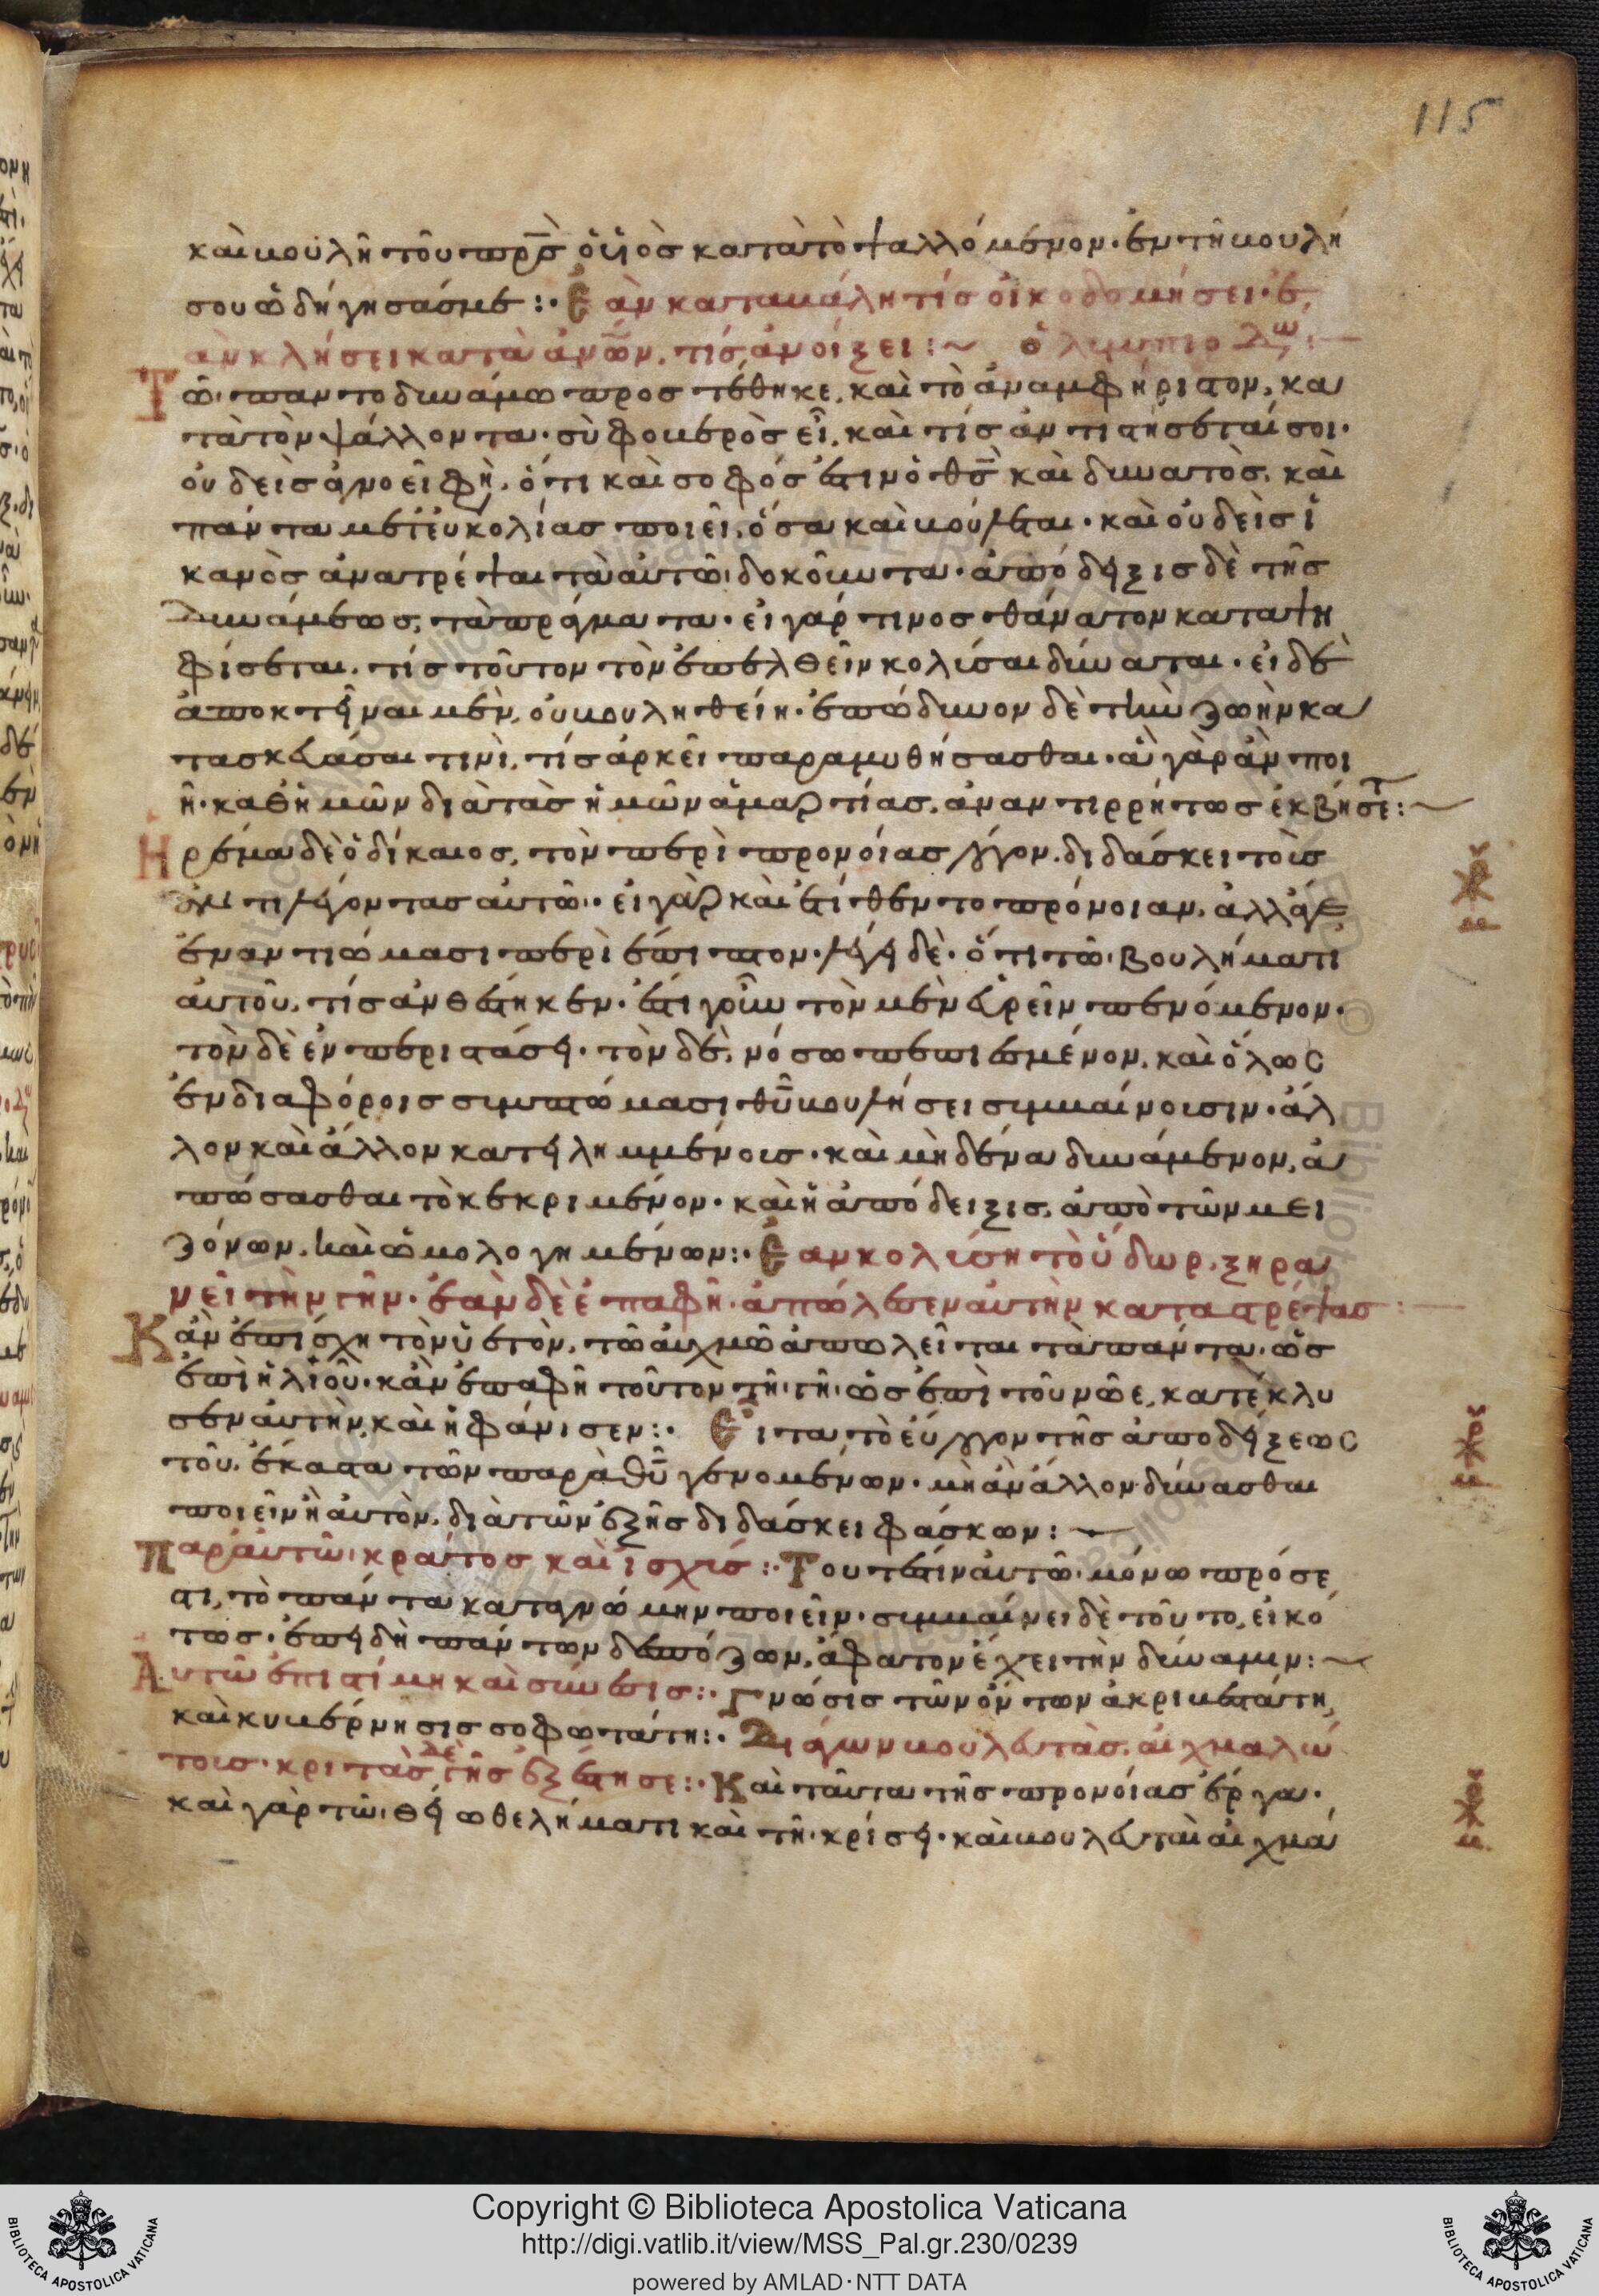 115
καὶ βουλῆ τοῦ πρς ὁ υἱὸς κατὰ τὸ ψαλλόμενον· ἐν τῆ βουλῆ
σου ὡδήγησάς με :· Ἐὰν καταβάλη τίς οἰκοδομήσει· ἐ
ὰν κλήσει κατὰ ἀνων, τίς ἀνοίξει :~ ὀλυμπιο
Τῶ παντοδυνάμω προστέθηκε, καὶ τὸ ἀναμφήριστον, κα
τὰ τὸν ψάλλοντα· σὺ φοβερὸς εἶ, καὶ τίς ἀντιστήσεταί σοι·
οὐδεὶς ἀνοεῖ φὴ, ὅτι καὶ σοφός ἐστιν ὁ θς καὶ δυνατὸς, καὶ
πάντα μετ εὐκολίας ποιεῖ, ὅσα καὶ βούλεται· καὶ οὐδεὶς ἱ
κανὸς ἀνατρέψαι τὰ αὐτῶ δοκοῦντα· ἀπόδηξις δὲ τῆς
δυνάμεως, τὰ πράγματα· εἰ γάρ τινος θάνατον καταψη
φίσεται, τίς τοῦτον τὸν ἐπελθεῖν κολύσαι δύναται· εἰ δὲ
ἀποκτεῖναι μὲν, οὐ βουληθείη· ἐπώδυνον δὲ τὴν ζωὴν κα
τασκευάσαι τινὶ, τίς ἀρκεῖ παραμυθήσασθαι· ἃ γὰρ ἂν ποι
ῆ· καθ ἡμῶν διὰ τὰς ἡμῶν ἁμαρτίας, ἀναντιρρήτως ἐκβήσετ :~
Ηρέμα δὲ ὁ δίκαιος, τὸν περὶ προνοίας λόγον, διδάσκει τοὺς
ἀντιλέγοντας αὐτῶ· εἰ γὰρ καὶ ἐτίθεντο πρόνοιαν, ἀλλ
ἐναντιώμασι περὶ ἔπιπτον· λέγει δὲ· ὅτι τῶ βουλήματι
αὐτοῦ, τίς ἀνθέστηκεν· ἔστι γοῦν τὸν μὲν εὑρεῖν πενόμενον·
τὸν δὲ ἐν περιστάσει· τὸν δὲ, νόσω πεπιεσμένον, καὶ ὅλως
ἐν διαφόροις συμπτώμασι θυ βουλήσει συμβαίνουσιν· ἄλ
λον καὶ ἄλλον κατειλημμένοις· καὶ μηδένα δυνάμενον, ἀ
πώσασθαι τὸ κεκριμένον· καὶ ἡ ἀπόδειξις, ἀπὸ τῶν μει
ζόνων, καὶ ὡμολογημένων :· Ἐὰν κολύση τὸ ὕδωρ, ξηρα
νεῖ τὴν γῆν· ἐὰν δὲ ἐπαφῆ· ἀπώλεσεν αὐτὴν καταστρέψας :
Κἂν ἐπίσχη τὸν ὑετὸν, τῶ αὐχμῶ ἀπωλεῖται τὰ πάντα· ὡς
ἐπὶ ἡλιοῦ· κἂν ἐπαφῆ τοῦτον τῆ γῆ· ὡς ἐπὶ τοῦ νῶε, κατέκλυ
σεν αὐτὴν, καὶ ἠφάνισεν :· Εἶτα, τὸ εὔλογον τῆς ἀποδείξεως
τοῦ, ἕκαστα τῶν παρὰ θυ γενομένων· μὴ ἂν ἄλλον δύνασθαι
ποιεῖν ἢ αὐτὸν, διὰ τῶν ἑξῆς διδάσκει φάσκων :~
Παρ αὐτῶ κράτος καὶ ισχύς :· Τουτέστιν αὐτῶ μόνω πρόσε
στι, τὸ πάντα κατα γνώμην ποιεῖν· συμβαίνει δὲ τοῦτο, εἰκό
τως· ἐπειδὴ πάντων δεσπόζων, ἄφατον ἔχει τὴν δύναμιν :~
Αὐτῶ ἐπιστίμη καὶ σύνεσις :· Γνώσις τῶν ὄντων ἀκριβεστάτη,
καὶ κυβέρνησις σοφωτάτη :· Διάγων βουλευτὰς, αἰχμαλώ
τους· κριτὰς δὲ γῆς ἐξέστησε :· Καὶ ταῦτα τῆς προνοίας ἔργα·
καὶ γὰρ τῶ θείω θελήματι καὶ τῆ κρίσει· καὶ βουλευταὶ αἰχμά
Copyright © Biblioteca Apostolica Vaticana
http://digi.vatlib.it/view/MSS_Pal.gr.230/0239
powered by AMLAD·NTT DATA
BIBLIOTECA APOSTOLICA VATICANA
BIBLIOTECA APOSTOLICA VATICANA